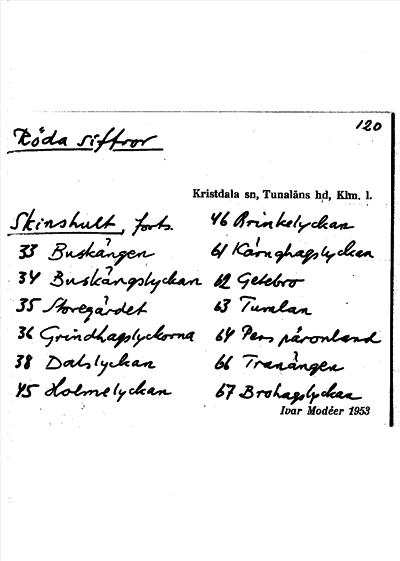 120
Röda siffror
Kristdala sn, Tunaläns hd, Klm. l.
Skinshult, forts.
33 Buskängen
34 Buskängslyckan
35 Storegärdet
36 Grindhagslyckorna
38 Dalslyckan
45 Holmelyckan
46 Brinkelyckan
61 Kärnghagslyckan
62 Getebro
63 Tuvalan
64 Pers päronland
66 Tranängen
67 Brohagslyckan
Ivar Modéer 1953